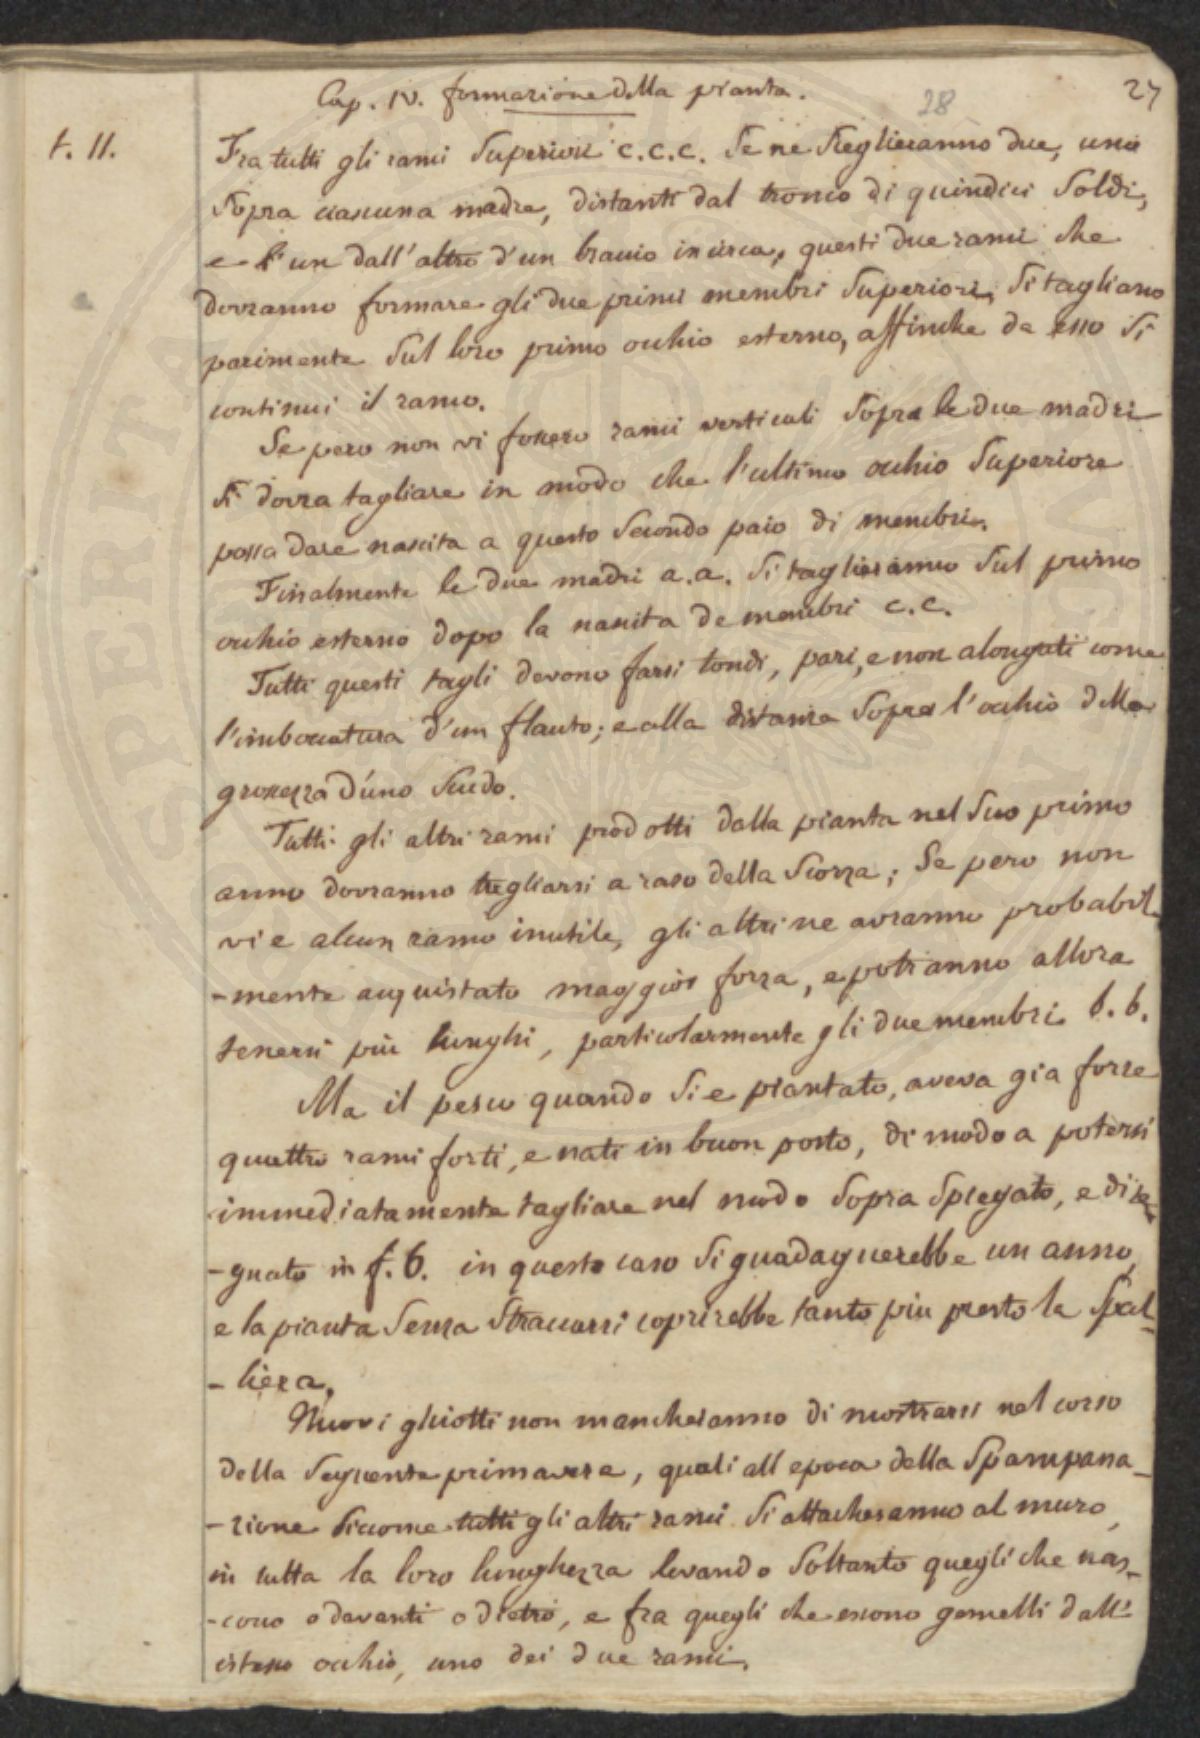 Cap. IV. formazione della pianta.
28
27
t. II.
Fra tutti gli rami Superiori c.c.c. Se ne Sieglieranno due, uno
Sopra ciascuna madre, distanti dal tronco di quindici Soldi,
e l'un dall'altro d'un braccio in circa, questi due rami che
dovranno formare gli due primi membri Superiori, Si tagliano
parimente Sul loro primo occhio esterno, affinche da esso Si
continui il ramo.
Se pero non vi fossero rami verticali Sopra le due madri
Si dovra tagliare in modo che l'ultimo occhio Superiore
possa dare nascita a questo Secondo paio di membri.
Finalmente le due madri a.a. Si taglieranno Sul primo
occhio esterno dopo la nascita de membri c.c.
Tutti questi tagli devono farsi tondi, pari, e non alongati come
l'imboccatura d'un flauto; e alla distanza Sopra l'occhio della
grossezza d'uno Scudo.
Tutti gli altri rami prodotti dalla pianta nel Suo primo
anno dovranno tagliarsi a raso della Scorza; Se pero non
vi e alcun ramo inutile, gli altri ne avranno probabil-
-mente acquistato maggior forza, e potranno allora
tenersi più lunghi, particolarmente gli due membri b.b.
Ma il pesco quando Si e piantato, aveva gia forse
quattro rami forti, e nati in buon posto, di modo a potersi
immediatamente tagliare nel modo Sopra Spiegato, e dise-
-gnato in f. 6. in questo caso Si guadagnerebbe un anno,
e la pianta Senza Straccarsi coprirebbe tanto piu presto la Spal-
-liera.
Nuovi ghiotti non mancheranno di mostrarsi nel corso
della Seguente primavera, quali all epoca della Spampana-
-zione Siccome tutti gli altri rami Si attacheranno al muro,
in tutta la loro lunghezza levando Soltanto quegli che nas-
-cono o davanti o dietro, e fra quegli che escono gemelli dall'
istesso occhio, uno dei due rami.